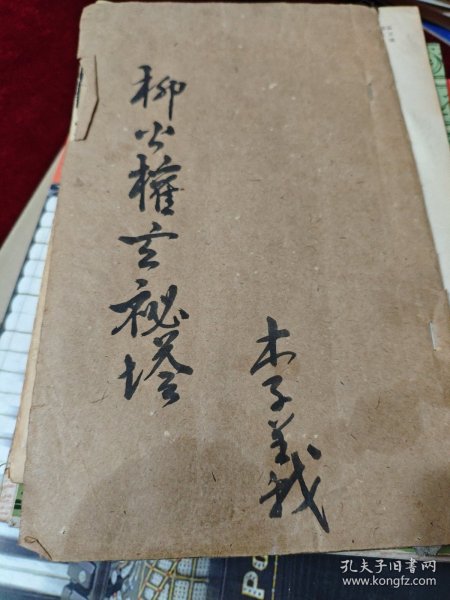 柳公權玄秘塔
李義
孔夫子旧书网
www.kongfz.com